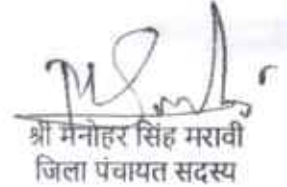 श्री मनोहर सिंह मरावी
जिला पंचायत सदस्य